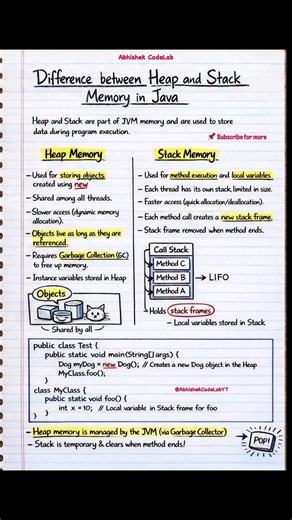 Abhishek CodeLab
Difference between Heap and Stack
Memory in Java
Heap and Stack are part of JVM memory and are used to store
data during program execution.
🚀 Subscribe for more
Heap Memory
- Used for storing objects
created using new
- Shared among all threads.
- Slower access (dynamic memory
allocation).
- Objects live as long as they are
referenced.
- Requires Garbage Collection (GC)
to free up memory.
- Instance variables stored in Heap
Objects
Shared by all
Stack Memory
- Used for method execution and local variables
- Each thread has its own stack, limited in size.
- Faster access (quick allocation/deallocation).
- Each method call creates a new stack frame.
- Stack frame removed when method ends.
Call Stack
Method C
Method B → LIFO
Method A
Holds stack frames
- Local variables stored in Stack
public class Test {
public static void main(String[] args) {
Dog myDog = new Dog(); // Creates a new Dog object in the Heap
MyClass.foo();
}
class MyClass {
public static void foo() {
int x = 10; // Local variable in Stack frame for foo
}
}
@AbhishekCodeLabYT
- Heap memory is managed by the JVM (via Garbage Collector)
- Stack is temporary & clears when method ends!
POP!